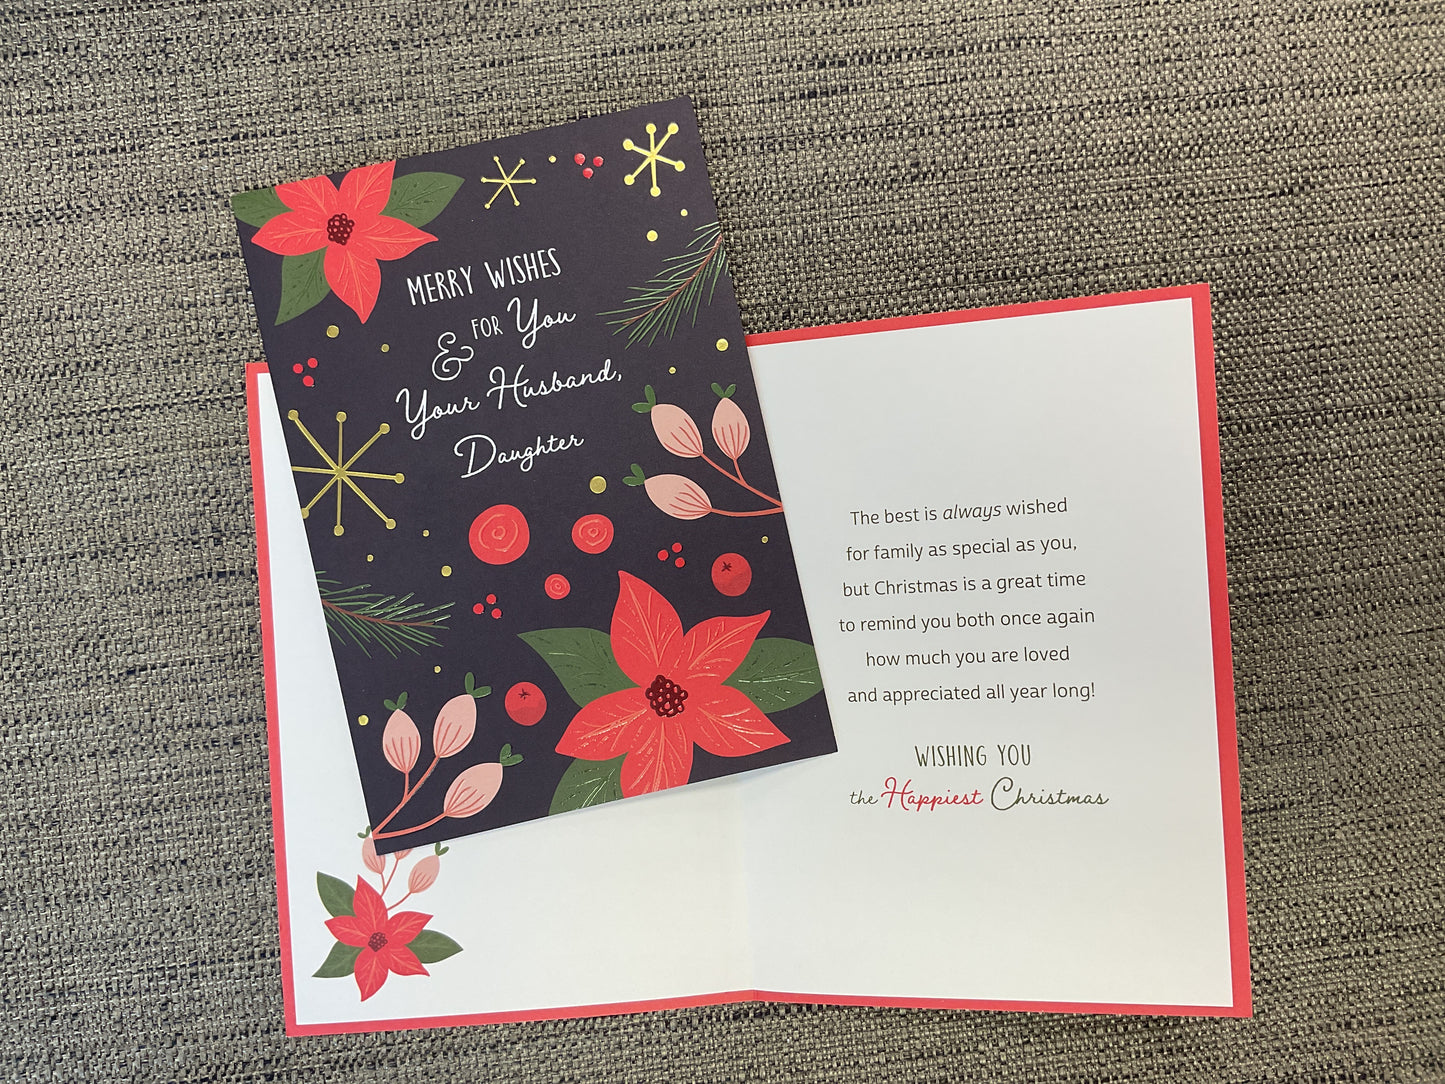 MERRY WISHES
& FOR You
Your Husband,
Daughter
The best is always wished
for family as special as you,
but Christmas is a great time
to remind you both once again
how much you are loved
and appreciated all year long!
WISHING YOU
the Happiest Christmas